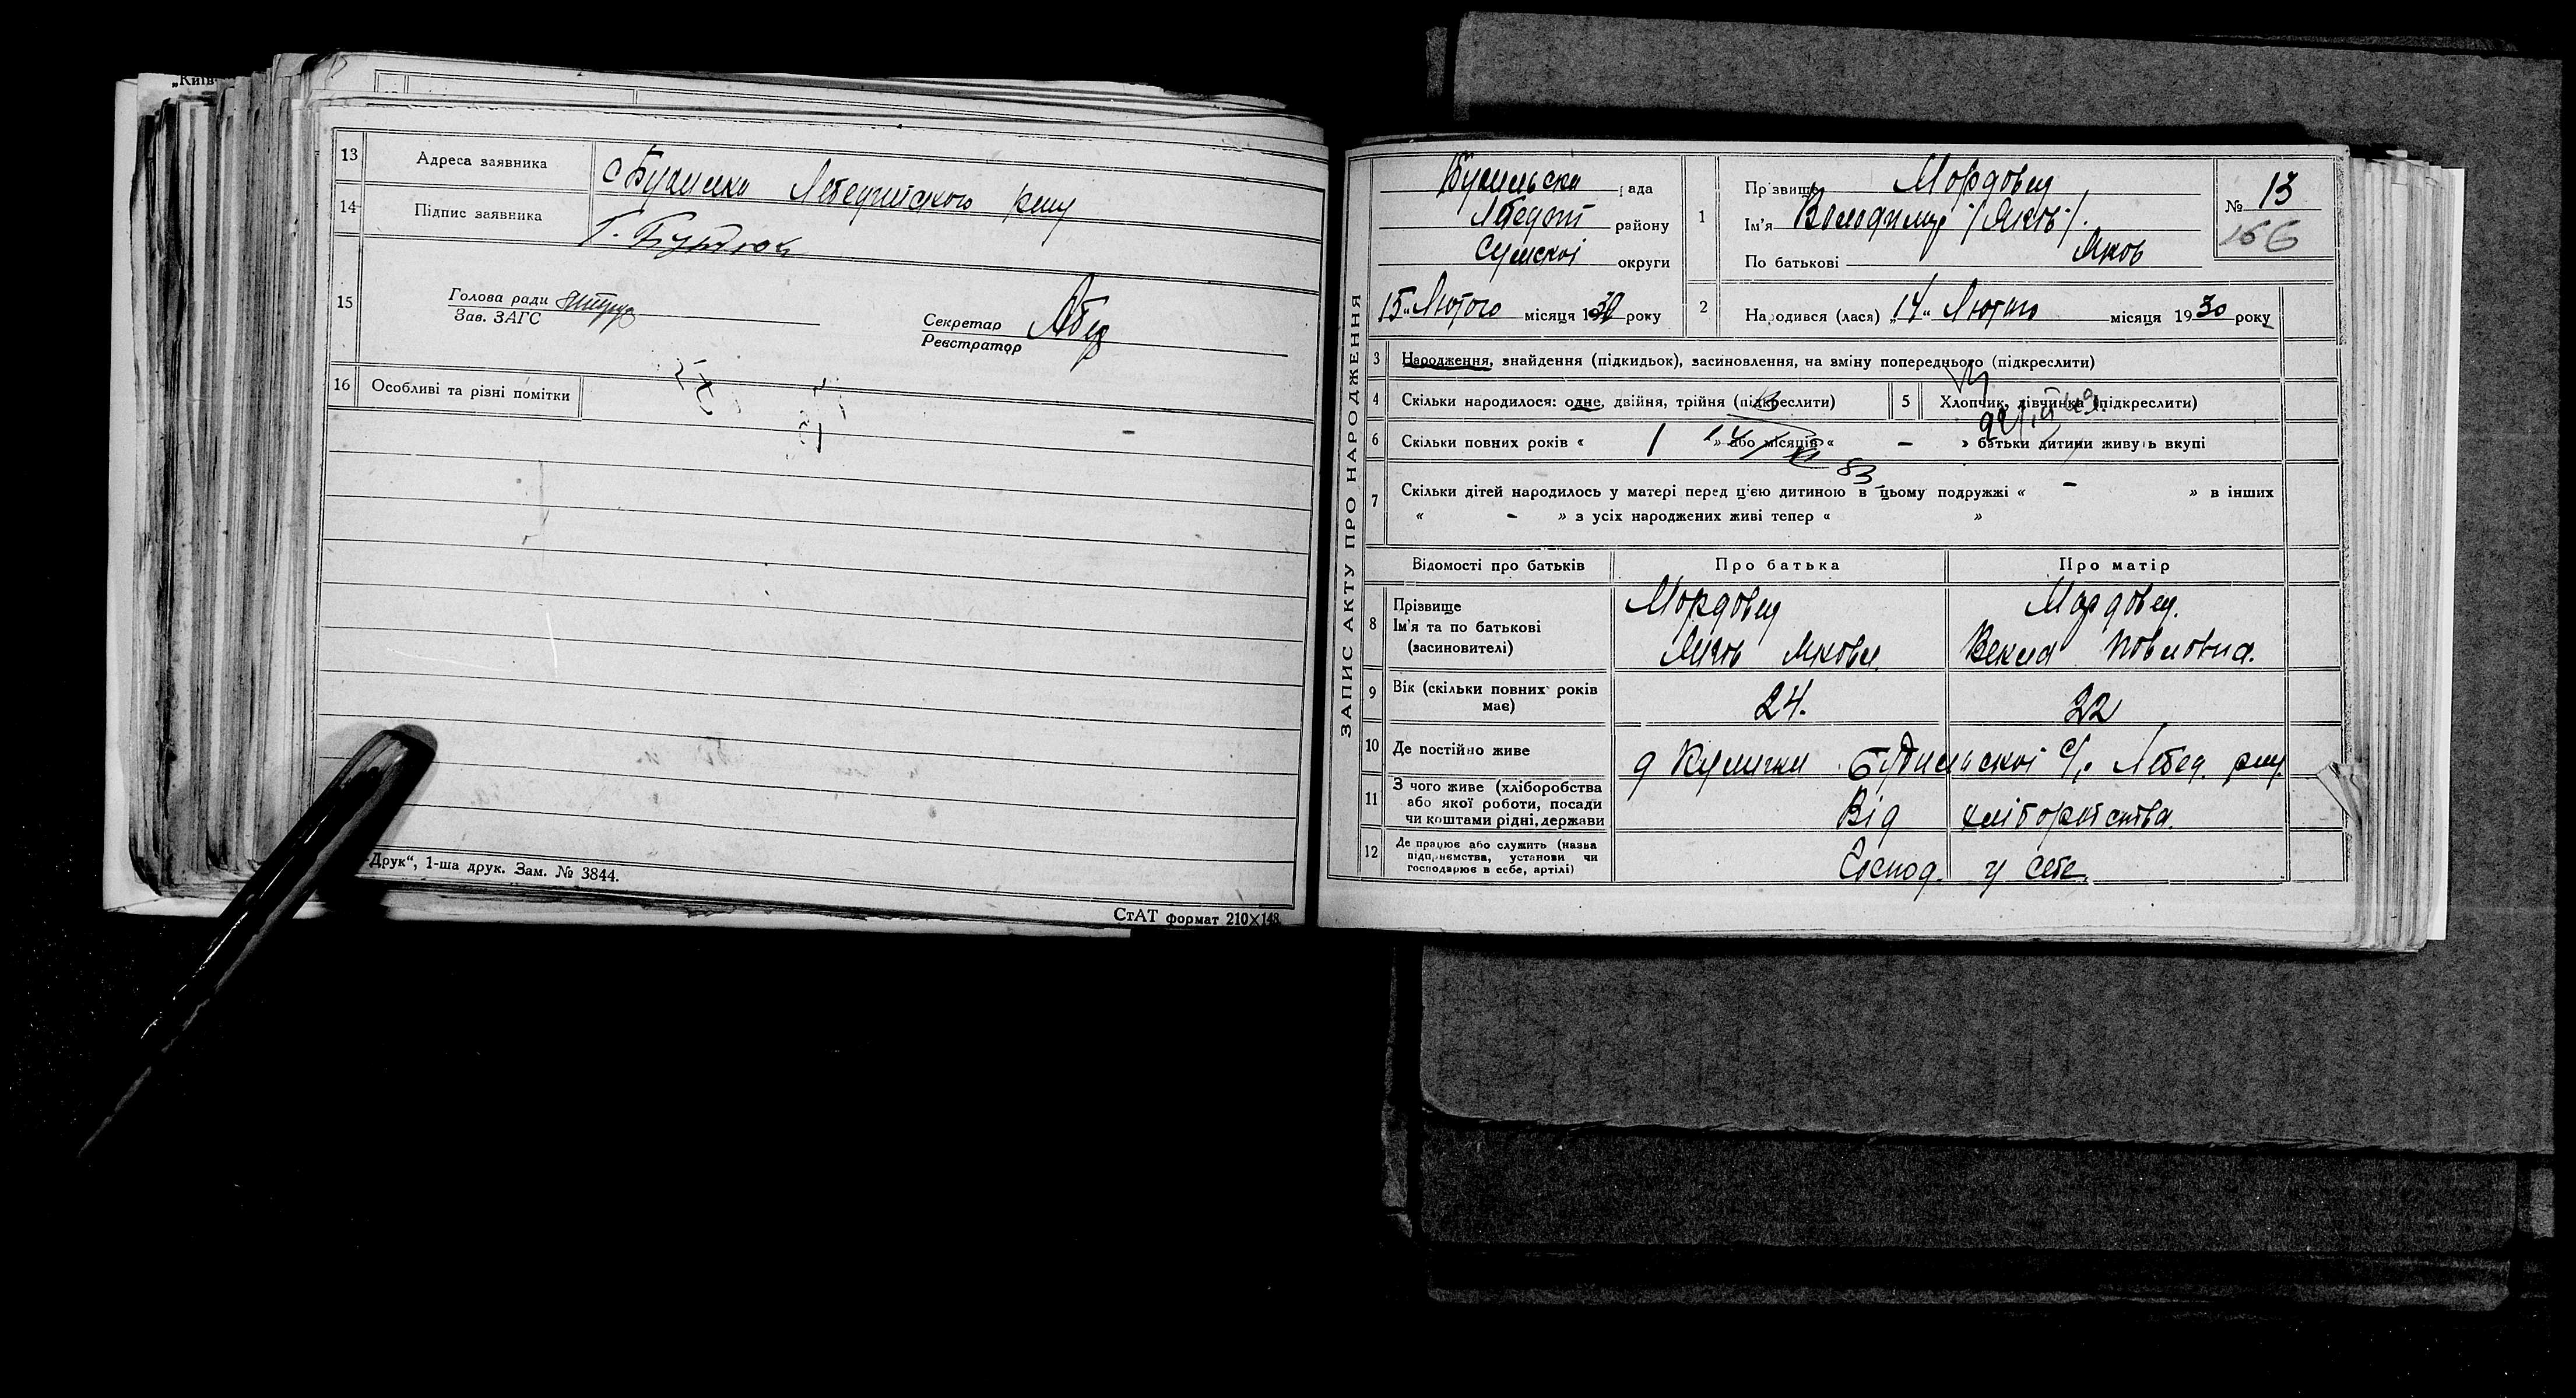 „Київ-
13 Адреса заявника с Лебединського рну
14 Підпис заявника Г.
15 Голова ради
Зав. ЗАГС
Секретар
Реєстратор
16 Особливі та різні помітки
-Друк“, 1-ша друк. Зам. № 3844.
СтАТ формат 210×148.
ЗАПИС АКТУ ПРО НАРОДЖЕННЯ
рада
Лебедин району
Сумскої округи
15 „Лютого місяця 1930 року
1 Прізвище Мордовец
Ім'я Володимир /Яков/.
По батькові Яков
№ 13
166
2 Народився (лася) „14“ Лютого місяця 1930 року
3 Народження, знайдення (підкидьок), засиновлення, на зміну попереднього (підкреслити)
4 Скільки народилося: одне, двійня, трійня (підкреслити)
5 Хлопчик, дівчинка (підкреслити)
6 Скільки повних років « 1 » або місяців « – » батьки дитини живуть вкупі
7 Скільки дітей народилось у матері перед цією дитиною в цьому подружжі « – » в інших
« – » з усіх народжених живі тепер « »
Відомості про батьків Про батька Про матір
8 Прізвище
Ім'я та по батькові
(засиновителі)
Мордовец
Яков Якови.
Мордовец.
Векла Повловна.
9 Вік (скільки повних років має) 24. 22
10 Де постійно живе д Кулички Будильскої с/р Лебед. рну.
11 З чого живе (хліборобства
або якої роботи, посади
чи коштами рідні, держави
Від хліборобства.
12 Де працює або служить (назва
підприємства, установи чи
господарює в себе, артілі)
Господ. у себе.